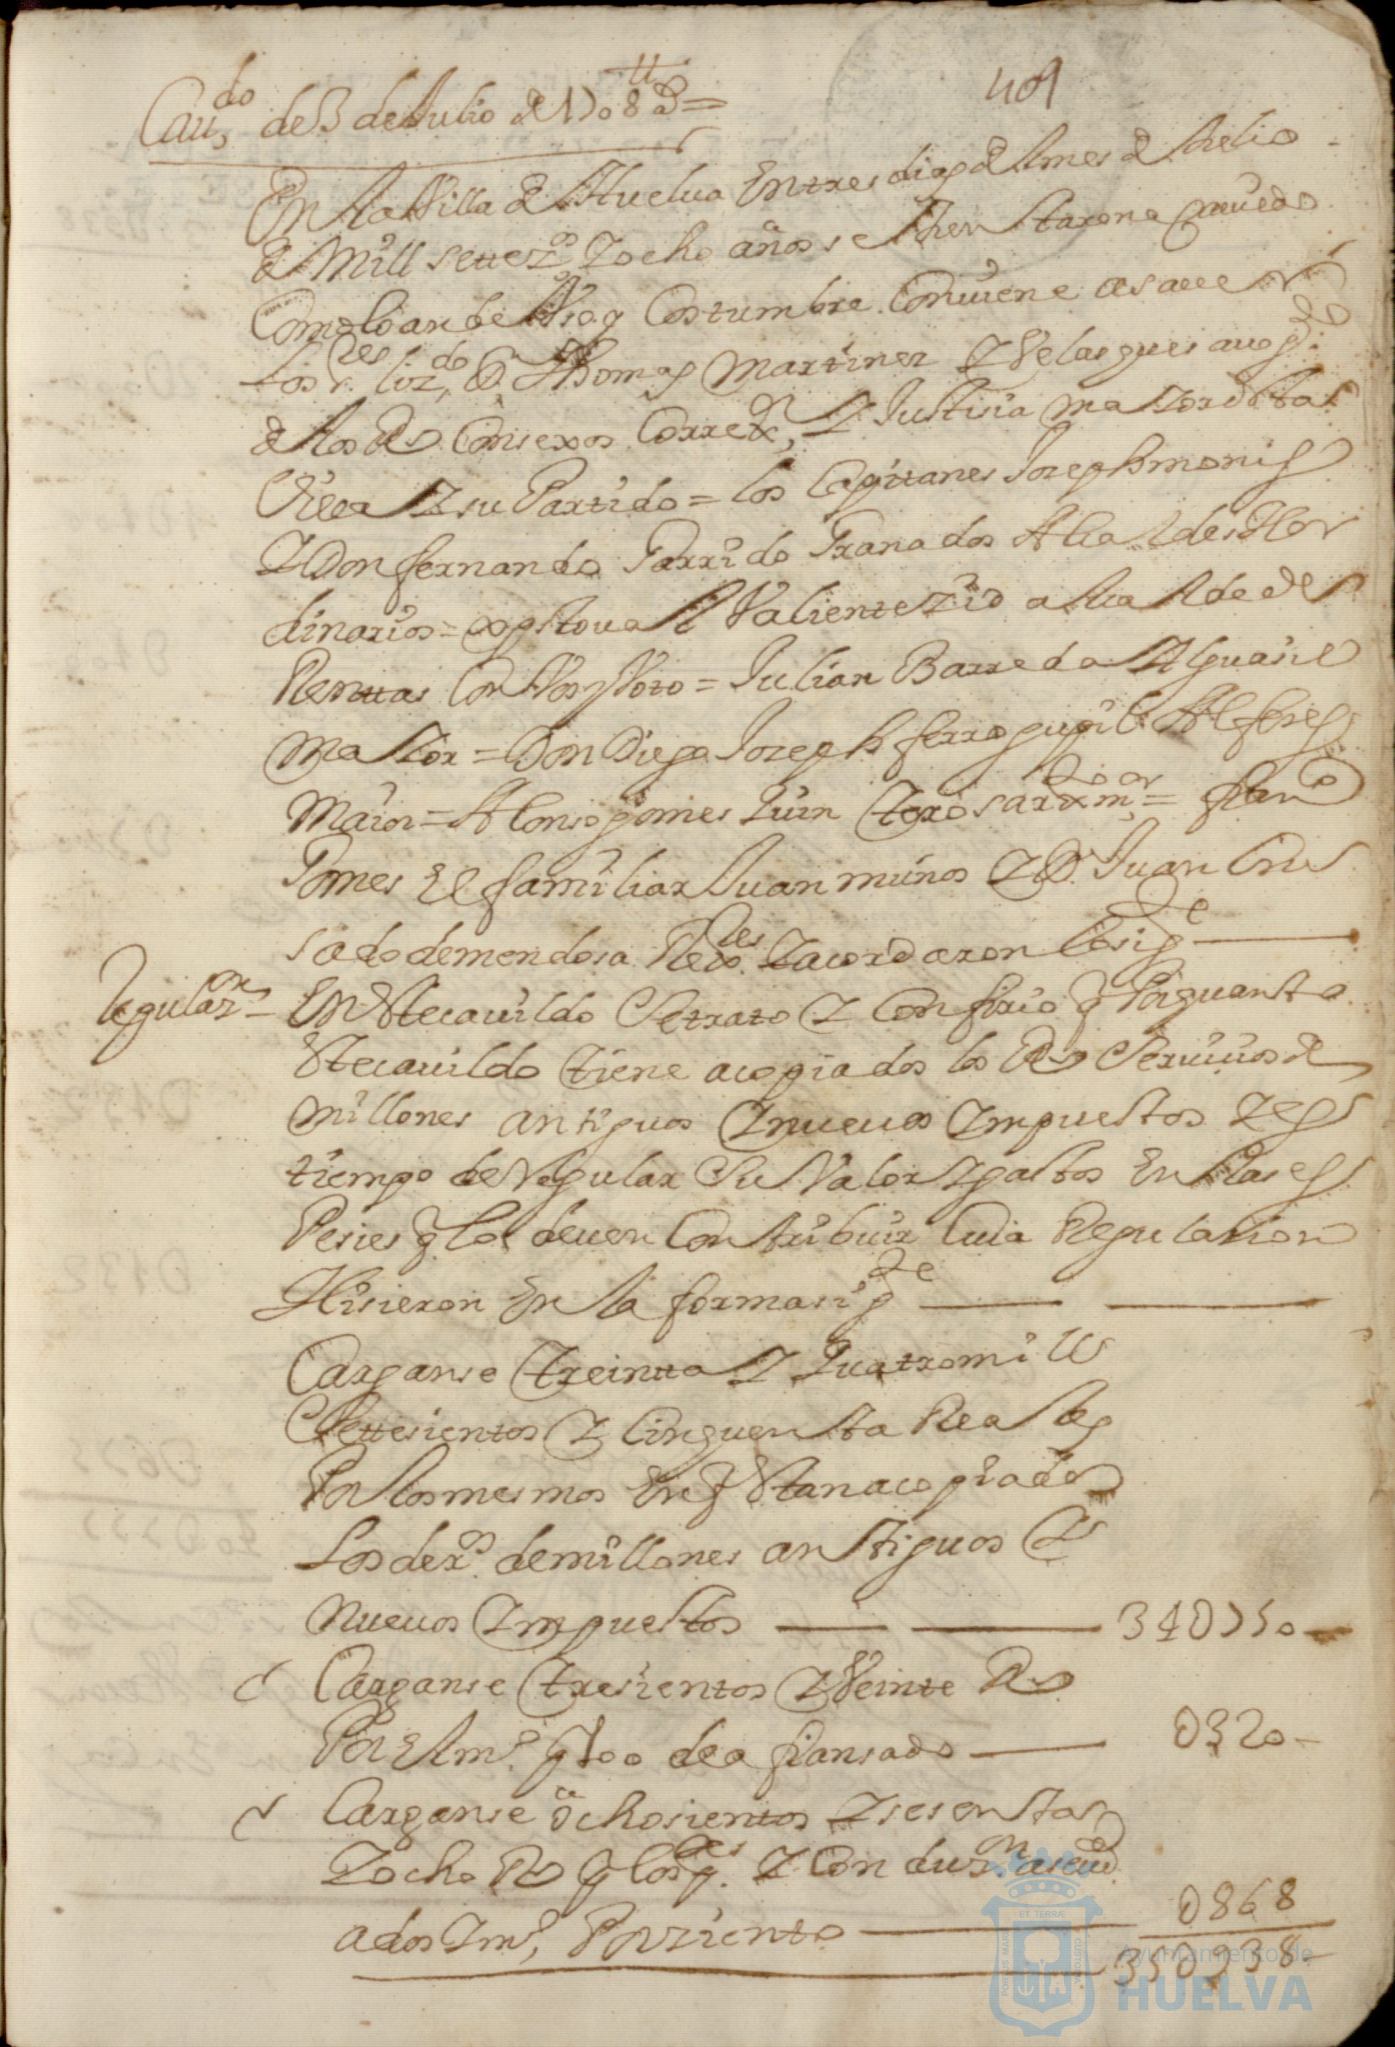 409
Cauº de 3 de Julio de 1708 as =
En la Villa de Huelua En tres dias del mes de Julio
de mill settezos y ocho años se Juntaron a Cauildo
Como lo an de Vso y Costumbre Conuiene a sauer
Los Sres lizdo D. Thomas Martinez y Velasques auogdo
de los Rs Consexos Correxor y Justisia maior desta
Villa y su Partido = los Capittanes Joseph monis
y Don fernando Garrido Granados Alcaldes Hor
dinarios = xpstoual Valiente zid alcalde de
Renttas Con Vos y Voto = Julian Barreda Alguasil
maior = Don Diego Joseph ferro Alferes
Maior = Alonso gomes quin tero sarxmor = franco
Gomes El familiar Juan muños y D. Juan Cru
sado de mendosa Rexres y acordaron lo sigte
Regularon = En Ste cauildo Se trato y Confirio q Por quanto
Ste cauildo tiene acopiados los Rs Seruiios de
millones antiguos y nueuos Impuestos y es
tiempo de Regular Su Valor y gastos En las es
Pesies q los deuen Contribuir Cuia Regulasion
Hisieron En la forma sigte
Carganse treintta y quatro mill
Settesientos y Cinquenta Reales
Por los mesmos En q Stan acopiados
Los derºs de millones antiguos y
nueuos Impuestos 34U750
Carganse tresientos y Veinte Rs
Por El de afiansado 0320
Carganse ochosientos y sesenta
y ocho Rs q y Con
Por ziento 0868
35U938
Ayuntamiento de
HUELVA